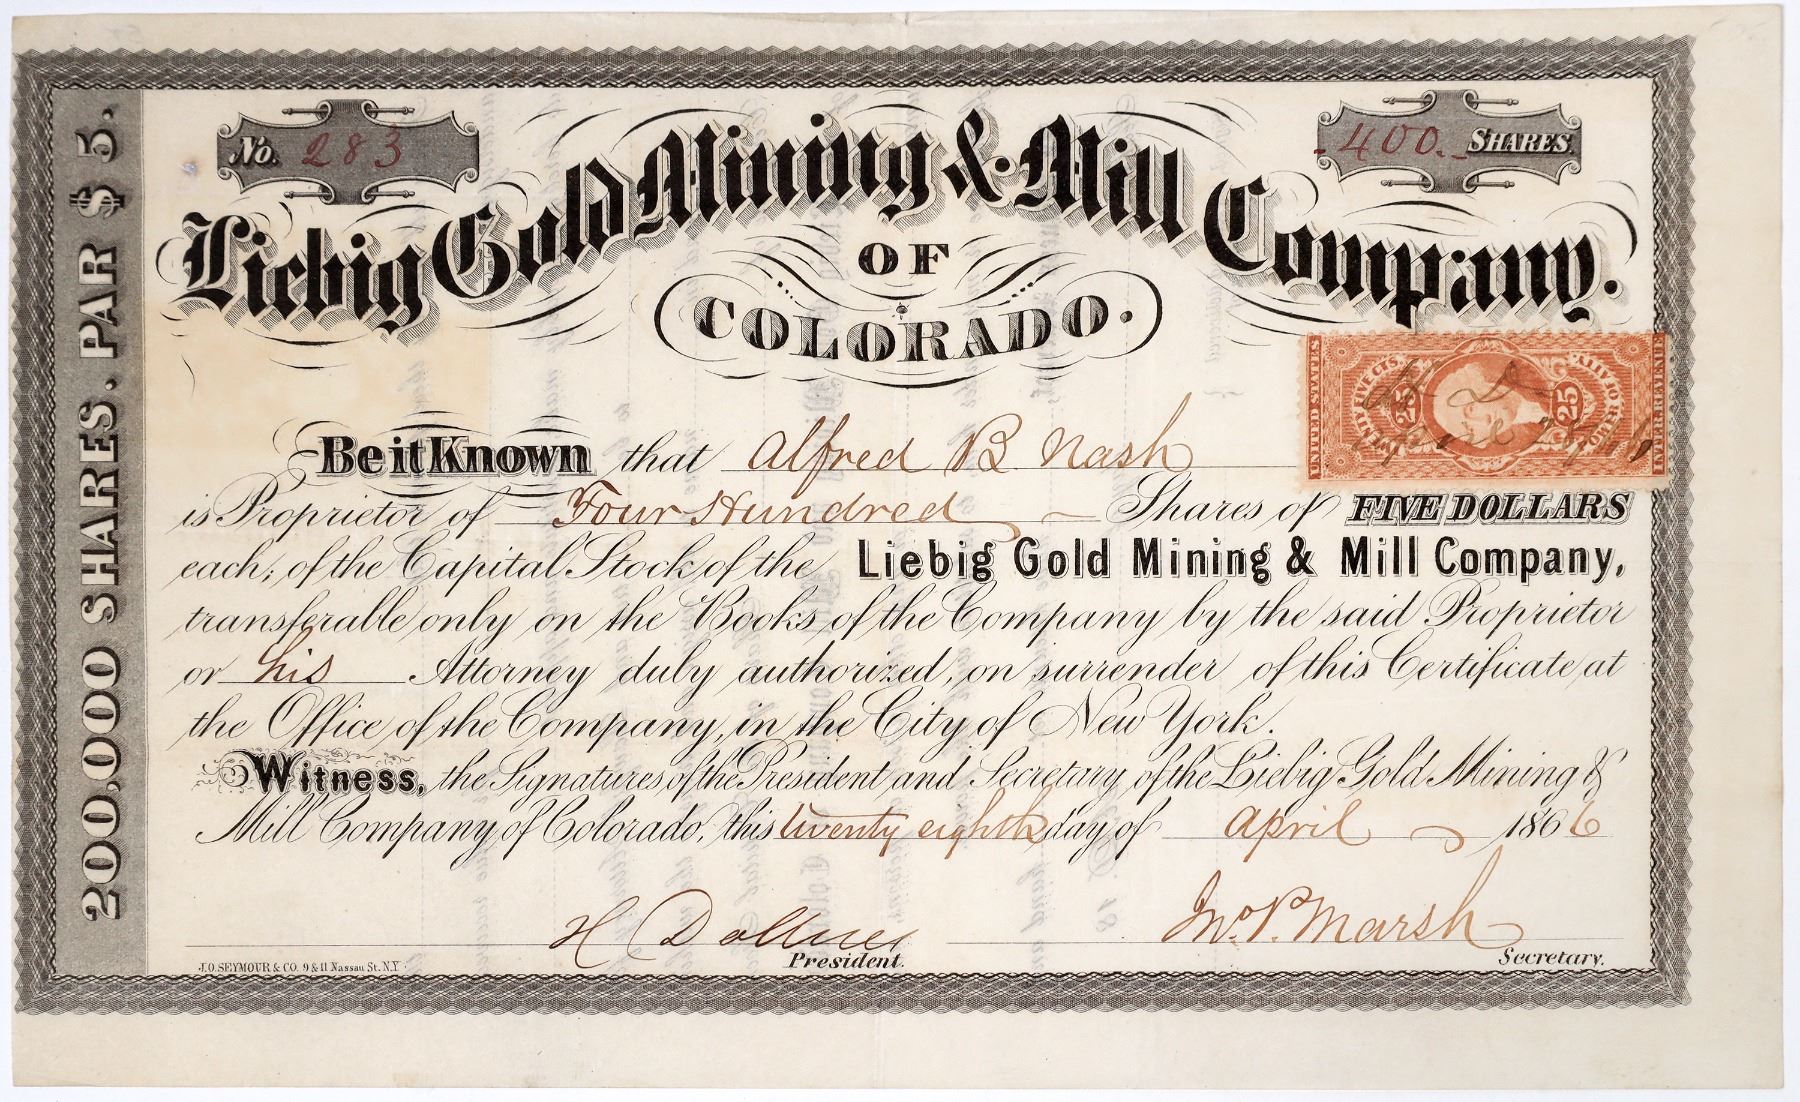 No. 283
400. SHARES.
Liebig Gold Mining & Mill Company.
OF
COLORADO.
200,000 SHARES. PAR $5.
UNITED STATES
TWENTY FIVE CTS.
25
25
INTER. REVENUE
April 28
Be it Known that Alfred B. Nash
is Proprietor of Four Hundred Shares of FIVE DOLLARS
each; of the Capital Stock of the Liebig Gold Mining & Mill Company,
transferable only on the Books of the Company by the said Proprietor
or his Attorney duly authorized, on surrender of this Certificate at
the Office of the Company, in the City of New York.
Witness, the Signatures of the President and Secretary of the Liebig Gold Mining &
Mill Company, of Colorado, this twenty eighth day of April 1866
H Dollner
President.
Jno. P. Marsh
Secretary.
J.O. SEYMOUR & CO. 9 & 11 Nassau St. N.Y.